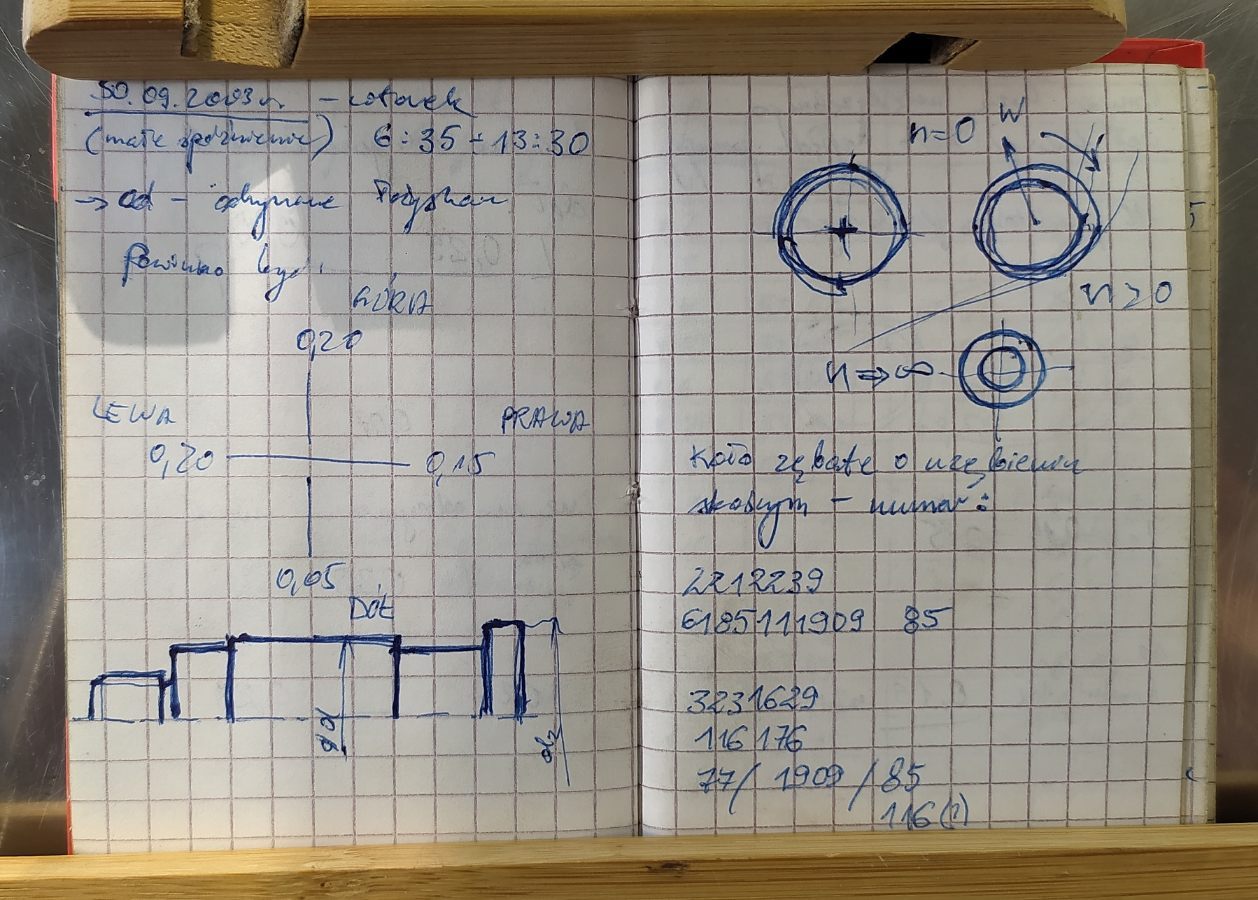 30.09.2003r. – wtorek
(małe spóźnienie) 6:35 ÷ 13:30
→ cd –
Powinno być:
GÓRA
0,20
LEWA
PRAWA
0,20
0,15
0,05
DÓŁ
ød
d₂
n=0
W
n>0
n⇒∞
Koło zębate o uzębieniu
skośnym – numer:
2212239
6185111909 85
3231629
116176
77/ 1909 /85
116(?)